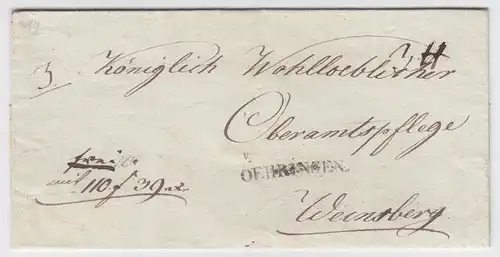 Königlich Wohlloeblicher
Oberamtspflege
frei
mit 110 f 39 xr.
v.
OEHRINGEN.
Weinsberg.